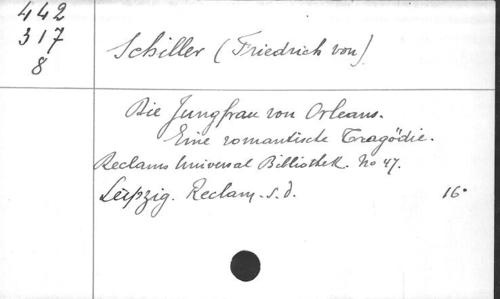 442
317
8
Schiller (Friedrich von)
Die Jungfrau von Orleans.
Eine romantische Tragödie.
Reclams Universal Bibliothek. No 47.
Leipzig. Reclam. s. d. 16°